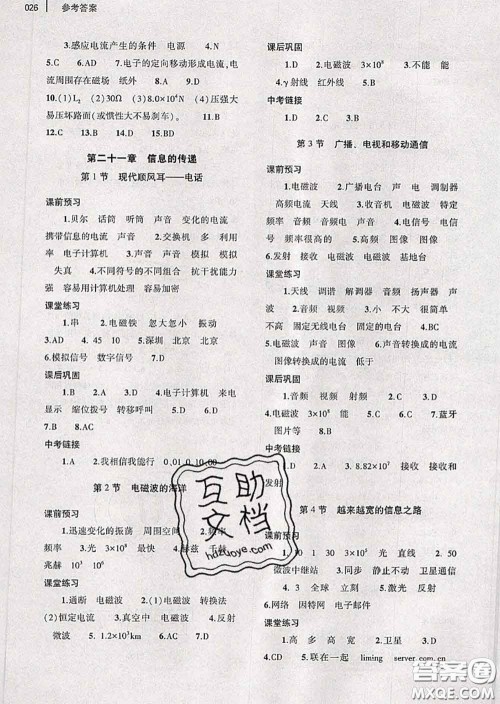 026 参考答案
3.感应电流产生的条件 电源 4.N
5.C 6.AD 7.电子的定向移动形成电流,电
流周围存在磁场 纸外 8.AD 9.A
10.(1)L₂ (2)30Ω (3)8.0×10⁴N (4)压强大
易压坏路面(或惯性大不易刹车)。 11.BD
12.C 13.BD 14.D 15.BD
第二十一章 信息的传递
第1节 现代顺风耳——电话
课前预习
1.贝尔 话筒 听筒 声音 变化的电流
携带信息的电流 声音 2.交换机 多 利用
率 电子计算机 3.声音 声音 模拟 模拟
失真 4.不同符号的不同组合 抗干扰能力
强 容易用计算机处理 容易加密
课堂练习
1.串 2.电磁铁 忽大忽小 振动
3.AD 4.AD 5.深圳 北京 北京
6.模拟信号 数字信号 7.D
课后巩固
1.A 2.AD 3.A 4.电子计算机 来电
显示 缩位拨号 转移呼叫 5.D 6.D
7.B 8.AC
中考链接
1.A 2.我相信我能行 0,01,0,10,00
第2节 电磁波的海洋
课前预习
1.迅速变化的振荡 周围空间
频率 3.光 3×10⁸ 4. 赫兹 千赫
兆赫 10³ 10⁶
课堂练习
1.通断 电磁波 2.电磁波 转换法
(2)恒定电流 3.真空 4.电磁波 反射
微波 5.1.2×10³km 6.AC 7.D
课后巩固
1.D 2.C 3.电磁波 3×10⁸ 不能 能
4.γ射线 红外线 5.B
中考链接
1.D 2.D 3.C
第3节 广播、电视和移动通信
课前预习
1.电磁波 2.广播电台 声 电 调制器
高频电流 天线 3.接收天线 电磁波 特定
频率 音频 音频 声音 4.电信号 电信
号 频率很高的 5.高频 图像 图像
6.发射 接收 电磁波 电磁波 基地台
课堂练习
1.天线 调谐 解调器 音频 扬声器 声
波 2.音频 视频 3.小 小 不强 不大
不高 固定无线电台 固定的电台 4.BD
5.C 6.AB 7.D 8.AC 9.声音转换成的电流
图像转换成的电流 低于
课后巩固
4.电磁波 3×10⁸ 能 5.C 6.C 7.蓝牙
图片等 8.D
中考链接
1.B 2.A 3.A 4.8.82×10⁷ 接收 接收和
发射
第4节 越来越宽的信息之路
课前预习
1. 10 1 30 3×10⁸ 光 直线 2.50
微波中继站 3.同步 静止不动 卫星通信
4.3 全球 立刻 5.激光 反射
6.网络 因特网 电子邮件
课堂练习
1.高 多 高 宽 2.卫星 3.D
4.CD 5.联在一起 liming server.com.cn
互助文档
hdzuoye.com
答案圈
MXQE.COM